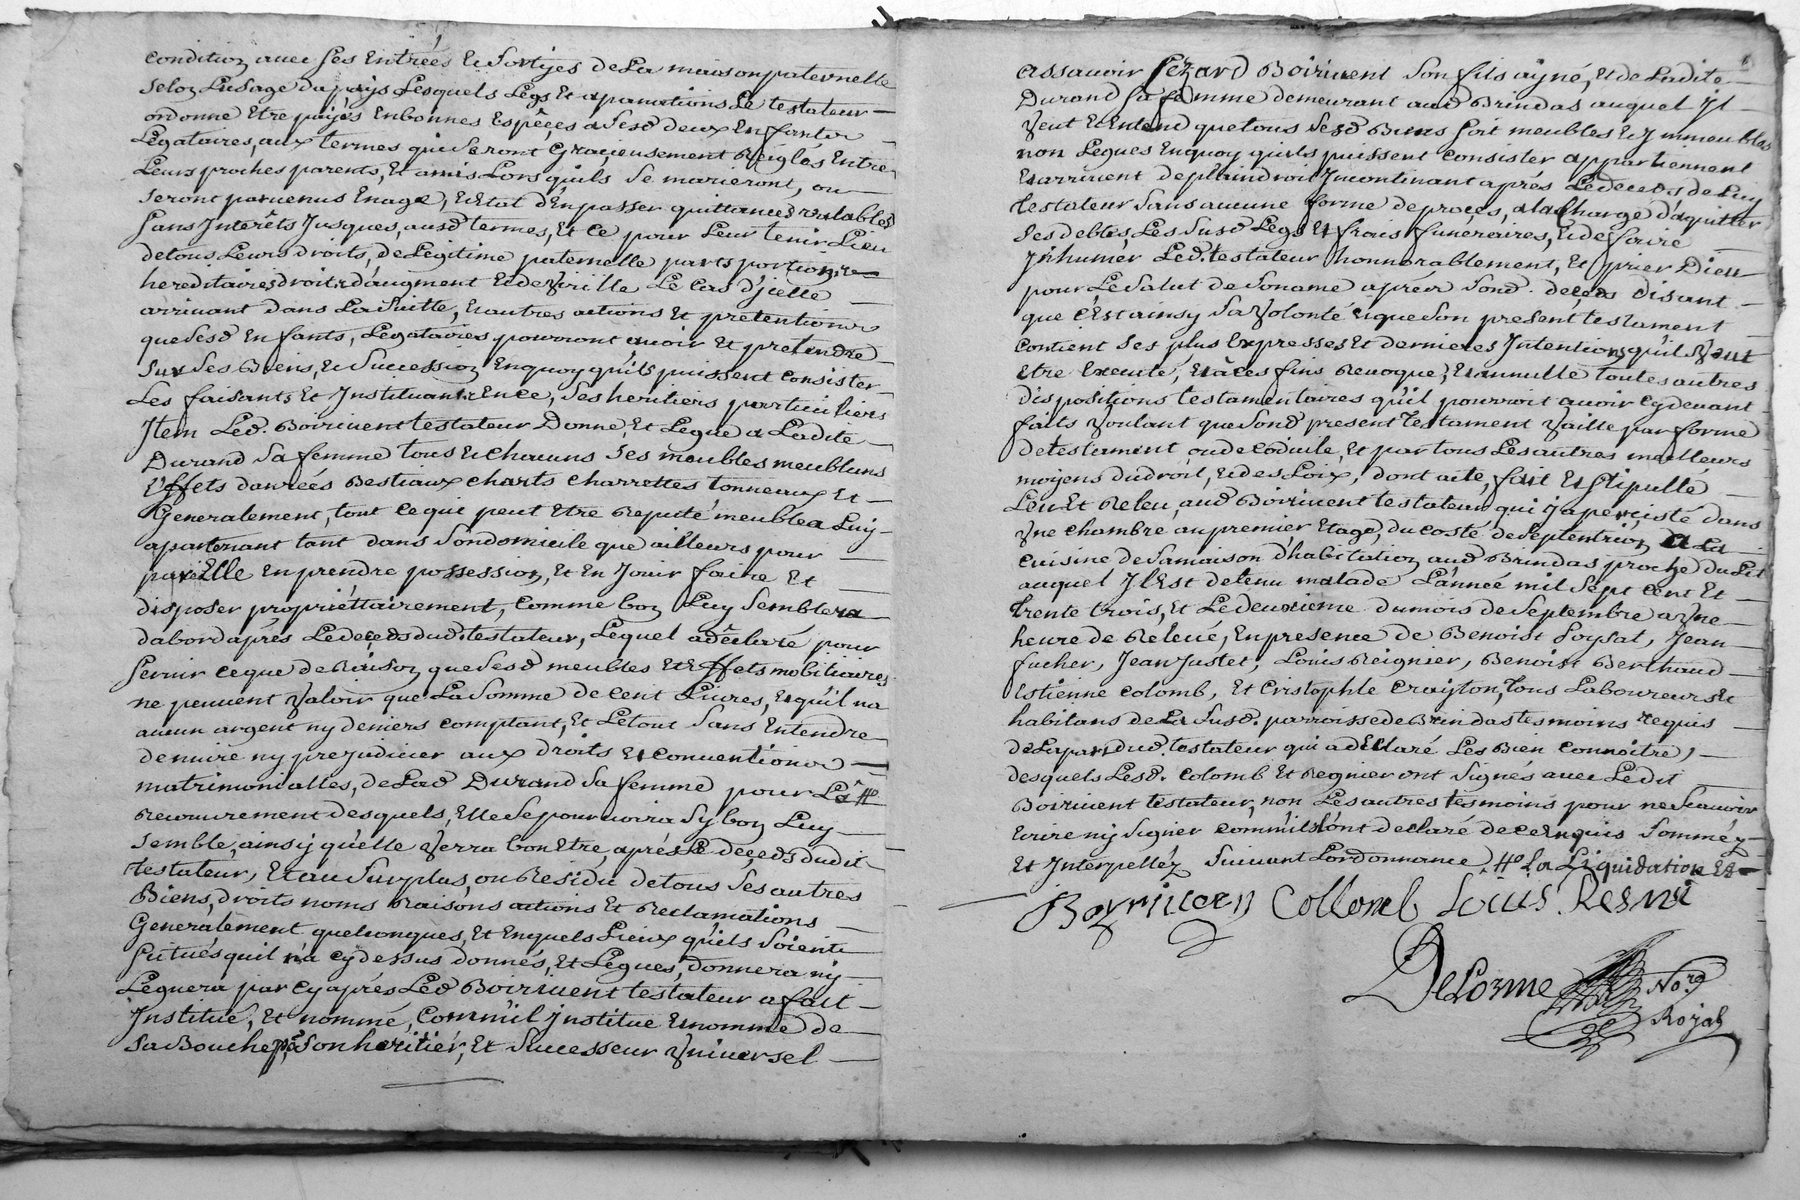 condition avec ses Entrées Et Sortyes de La maison paternelle
selon Lusage du pays Lesquels Legs Et apanations Le testateur
ordonne Etre payés En bonnes Espèces a Sesd deux Enfants
Légataires, aux termes qui Seront Gracieusement Reiglés Entre
Leurs proches parents, Et amis Lors quils Se marieront, ou
Seront parvenus Enage, Et Etat d'En passer quittances valables
Sans Interêts Jusques, ausd termes, Et Ce pour Leur tenir Lieu
de tous Leurs droits, de Legitime paternelle parts portions
hereditaires droits d'augment Et de Virille Le Cas d'jcelle
arrivant dans La Suitte, Et autres actions Et pretentions
que Sesd Enfants, Legataires pourront avoir Et pretendre
Sur Ses Biens, Et Succession En quoy qu'ils puissent consister
Les faisants Et Instituants En Ce, Ses heritiers particuliers
Item Led. Boirivent testateur Donne, Et Legue a Ladite
Durand Sa femme tous Et chacuns Ses meubles meublans
Effets danrées Bestiaux charts charrettes tonneaux Et
Generalement, tout Ce qui peut Etre Reputé meuble a Luy
apartenant tant dans Son domicile que ailleurs pour
par Elle En prendre possession, Et En Jouir faire Et
disposer propriéttairement, Comme bon Luy Semblera
dabord aprés Le deceds dud testateur, Lequel a déclaré pour
Servir Ce que de Raison que Sesd meubles Et Effets mobiliaires
ne peuvent Valoir que La Somme de Cent Livres, Et qu'il na
aucun argent ny deniers comptant, Et Le tout Sans Entendre
de nuire ny prejudicier aux droits Et Conventions
matrimonialles, de Lad Durand Sa femme pour La #
Recouvrement desquels, Elle Se pourvoira Sy bon Luy
Semble, ainsy qu'elle Verra bon Etre, aprés Le deceds dudit
testateur, Et au Surplus, ou Residu de tous Ses autres
Biens, droits noms Raisons actions Et Reclamations
Generalement quelconques, Et En quels Lieux qu'ils Soient
Situés quil n'a Cy dessus donnés, Et Legues, donnera ny
Leguera par Cy aprés Led Boirivent testateur a fait
Institué, Et nommé, Comm'il jnstitue Et nomme de
Sa Bouche Son heritier, Et Successeur Universel
Assavoir Cézard Boirivent Son fils ayné, Et de Ladite
Durand Sa femme demeurant aud Brindas auquel Il
Veut Et Entend que tous Sesd Biens Soit meubles Et Immeubles
non Legues En quoy quils puissent consister appartiennent
Et arrivent de plain droit Incontinant aprés Le deceds de Luy
testateur Sans aucune forme de proces, a la charge d'aquitter
Ses debtes, Les Susd Legs Et frais funeraires, Et de faire
Jnhumer Led. testateur honnorablement, Et prier Dieu
pour Le Salut de Son ame aprés Sond. deceds disant
que C'est ainsy Sa Volonté Et que Son present testament
Contient Ses plus Expresses Et dernieres Intentions qu'il Veut
Etre Executé, Et à Ces fins Revoque, Et annulle toutes autres
dispositions testamentaires qu'il pourroit avoir Cy devant
faits Voulant que Sond present testament Vaille par forme
de testament ou de Codicile, Et par tous Les autres meilleurs
moyens du droit, Et des Loix, dont acte, fait Et Stipullé
Leu Et Releu, aud Boirivent testateur qui y a percisté dans
Une chambre au premier Etage, du costé de Septentrion a La
cuisine de Sa maison d'habitation aud Brindas proche du Lit
auquel Il Est detenu malade L'année mil Sept Cent Et
trente trois, Et Le deuxieme du mois de Septembre a Une
heure de Relevé, En presence de Benoist Poysat, Jean
fucher, Jean Justet, Louis Reignier, Benoist Berthaud
Estienne Colomb, Et Cristophle Crayton, Tous Laboureurs Et
habitans de La Susd. parroisse de Brindas tesmoins Requis
de La part dud testateur qui a declaré Les Bien Connoître,
desquels Lesd. Colomb Et Regnier ont Signés avec Ledit
Boirivent testateur, non Les autres tesmoins pour ne Scavoir
Ecrire ny Signer Comm'ils L'ont declaré de Ce Enquis Sommez
Et Interpellez Suivant Lordonnance, # La Liquidation Et
Boyriven Collomb Louis Resni
DeLorme No.re
Royal